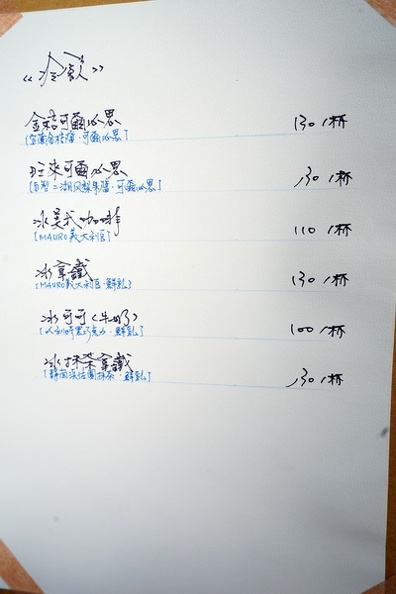 《冷飲》
金桔可爾必思 130/杯
[宜蘭金桔醬·可爾必思]
旺來可爾必思 130/杯
[自製土鳳梨果醬·可爾必思]
冰美式咖啡 110/杯
[MAURO義大利豆]
冰拿鐵 130/杯
[MAURO義大利豆·鮮乳]
冰可可(牛奶) 100/杯
[黑巧克力·鮮乳]
冰抹茶拿鐵 130/杯
[靜岡抹茶·鮮乳]